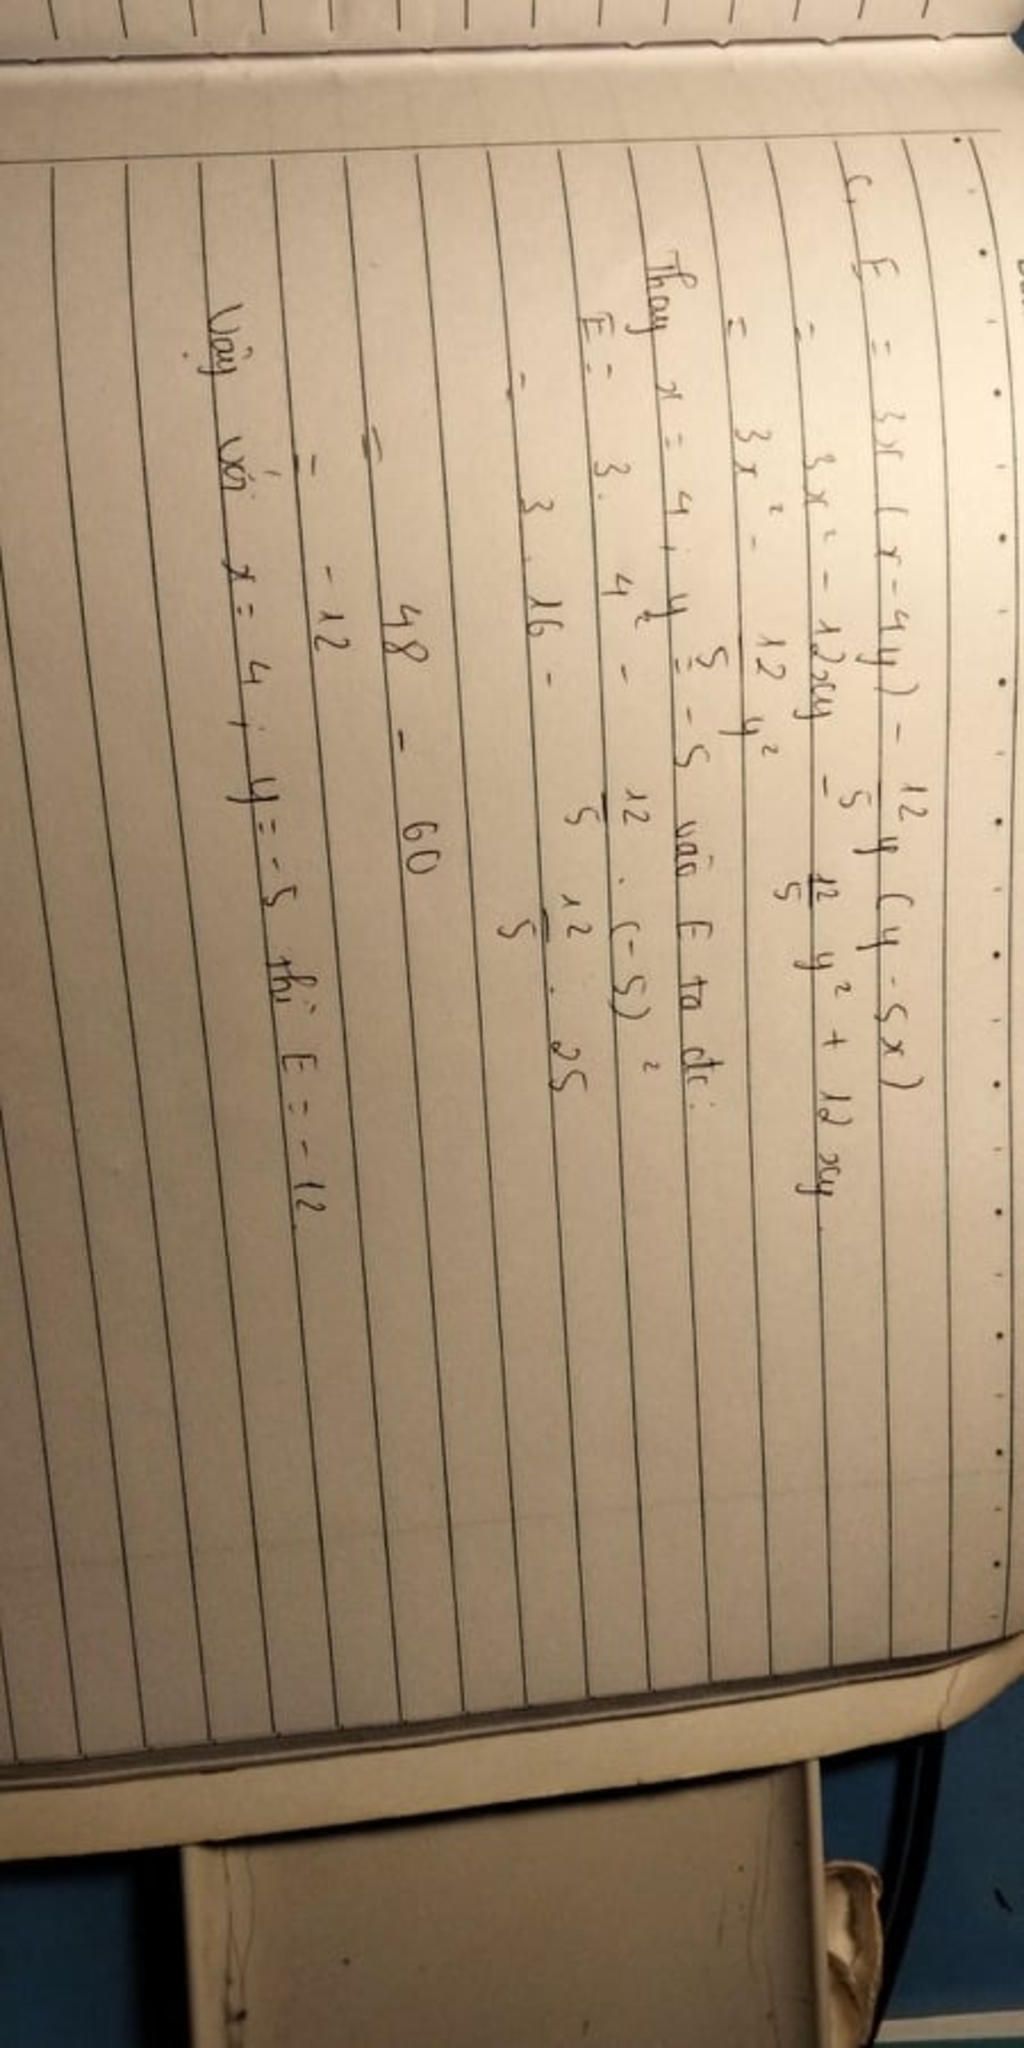 c, E = 3x (x - 4y) - 12/5 y (y - 5x)
= 3x² - 12xy - 12/5 y² + 12xy
= 3x² - 12/5 y²
Thay x = 4 ; y = -5 vào E ta đc:
E = 3. 4² - 12/5 . (-5)²
= 3 . 16 - 12/5 . 25
= 48 - 60
= -12
Vậy với x = 4 ; y = -5 thì E = -12.